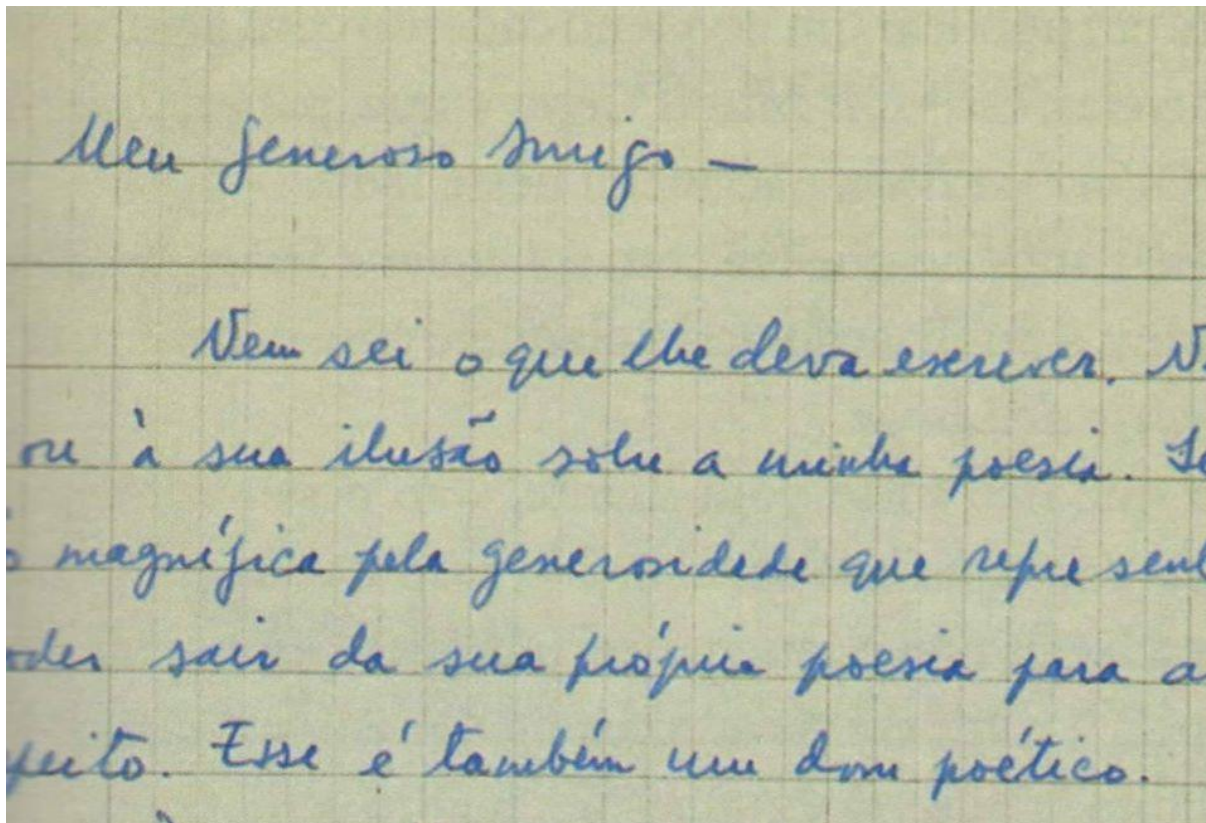 Meu generoso Amigo —
Nem sei o que lhe deva escrever.
ou à sua ilusão sobre a minha poesia.
magnífica pela generosidade que represent
oder sair da sua própria poesia para a
feito. Esse é também um dom poético.